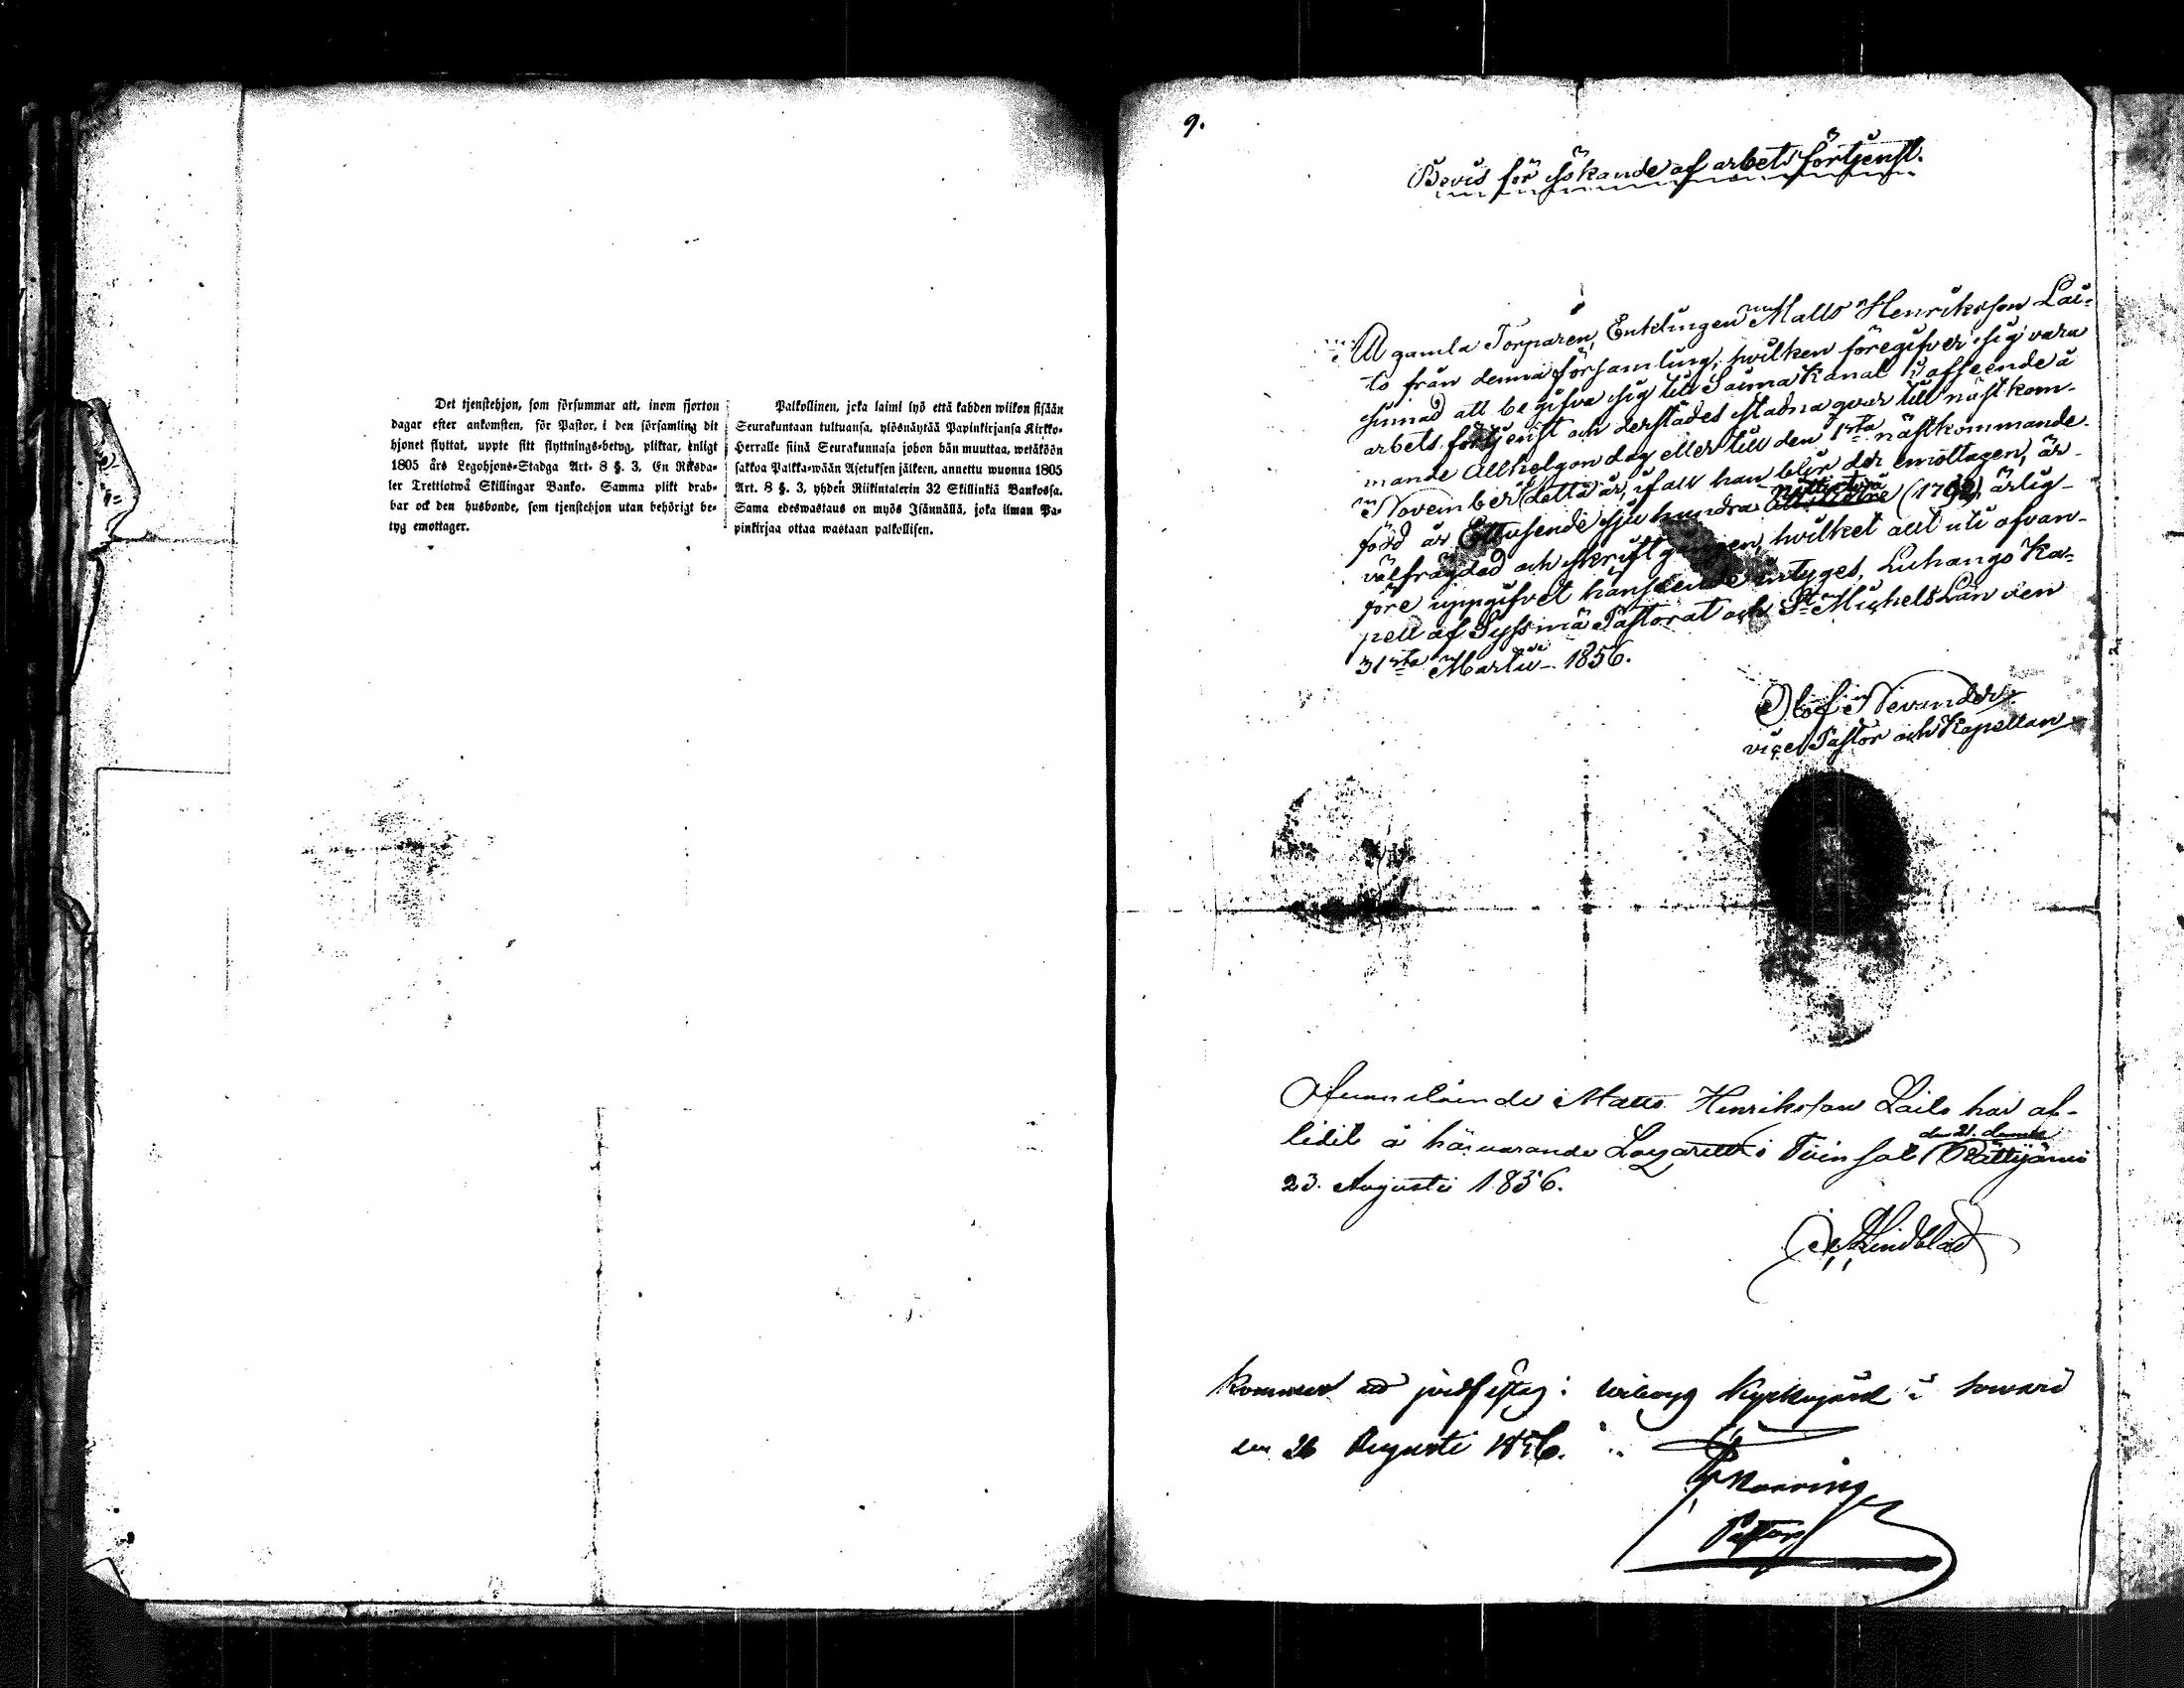 Det tjenstehjon, som försummar att, inom fjorton
dagar efter ankomsten, för Pastor, i den församling dit
hjonet flyttat, uppte sitt flyttnings-betyg, pliktar, enligt
1805 års Legohjons-Stadga Art. 8 §. 3, En Riksda-
ler Trettiotwå Skillingar Banko. Samma plikt drab-
bar ock den husbonde, som tjenstehjon utan behörigt be-
tyg emottager.
Palkollinen, joka laimi lyö että kahden wiikon sisään
Seurakuntaan tultuansa, ylösnäytää Papinkirjansa Kirkko-
Herralle siinä Seurakunnasa johon hän muuttaa, wetäköön
sakkoa Palkka-wään Asetuksen jälkeen, annettu wuonna 1805
Art. 8 §. 3, yhden Riikintalerin 32 Skillinkiä Bankossa.
Sama edeswastaus on myös Isännällä, joka ilman Pa-
pinkirjaa ottaa wastaan palkollisen.
9.
Bevis för sökande af arbets förtjenst.
Gamla Torparen, Enklingen Matts Henriksson Lai-
to från denna församling, hvilken föregifver sig vara
sinnad att begifva sig till Saima Kanal i afseende å
arbets förtjenst och derstädes stadna qvar till nästkom-
mande Allhelgon dag eller till den 1sta nästkommande
November detta år, ifall han blir der emottagen, är
född år Ettusende sju hundra (1792), ärlig
välfrägdad och skriftgången, hvilket allt uti ofvan-
före uppgifvet hänseende intyges. Luhango Ka-
pell af Sysmä Pastorat och St Michels Län den
31sta Martii 1856.
Olof Nevander
vice Pastor och Kapellan
Matts Henriksson Laito har af-
lidit å härvarande Lazarett i Tuin sal den 21. dennes Rättijärvi
23. Augusti 1856.
Lindblad
Kommer att jordfästas i Wiborg Kyrkogård
den 26 Augusti 1856.
Pastor